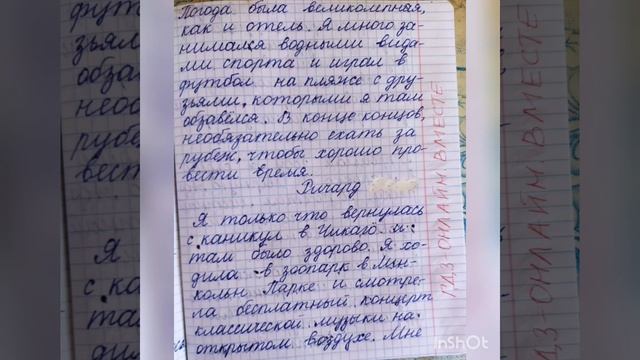 Погода была великолепная,
как и отель. Я много за-
нимался водными вида-
ми спорта и играл в
футбол на пляже с дру-
зьями, которыми я там
обзавёлся. В конце концов,
необязательно ехать за
рубеж, чтобы хорошо про-
вести время.
Ричард
Я только что вернулась
с каникул в Чикаго и
там было здорово. Я хо-
дила в зоопарк в Лин-
кольн Парке и смотре-
ла бесплатный концерт
классической музыки на
открытом воздухе. Мне
ГДЗ-ОНЛАЙН ВМЕСТЕ
InShOt